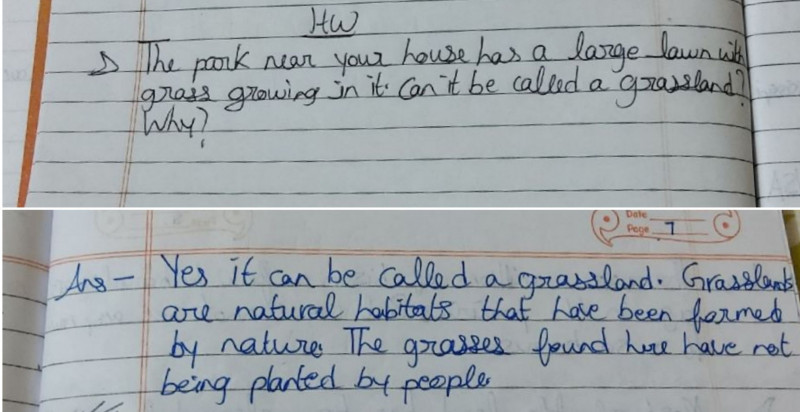 HW
The park near your house has a large lawn with
grass growing in it. Can it be called a grassland?
Why?
Date
Page 7
Ans - Yes it can be called a grassland. Grasslands
are natural habitats that have been formed
by nature. The grasses found here have not
being planted by people